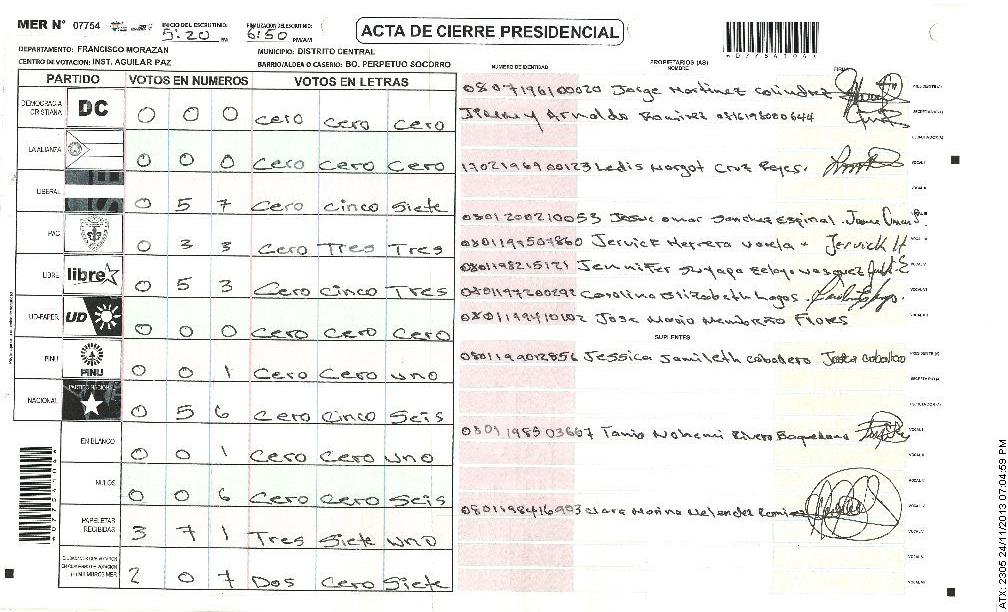 MER N° 07754 INICIO DEL ESCRUTINIO: 5:20 PM FINALIZACION DEL ESCRUTINIO: 6:50 PM/AM ACTA DE CIERRE PRESIDENCIAL
DEPARTAMENTO: FRANCISCO MORAZAN MUNICIPIO: DISTRITO CENTRAL
CENTRO DE VOTACION: INST. AGUILAR PAZ BARRIO/ALDEA O CASERIO: BO. PERPETUO SOCORRO
PARTIDO VOTOS EN NUMEROS VOTOS EN LETRAS
NUMERO DE IDENTIDAD PROPIETARIOS (AS) NOMBRE FIRMA
DEMOCRACIA CRISTIANA DC 0 0 0 cero cero cero
LA ALIANZA 0 0 0 cero cero cero
LIBERAL 0 5 7 cero cinco siete
PAC 0 3 3 Cero Tres Tres
LIBRE libre 0 5 3 Cero cinco Tres
UD-FAPER UD 0 0 0 Cero Cero Cero
PINU PINU 0 0 1 Cero Cero uno
NACIONAL PARTIDO NACIONAL 0 5 6 Cero Cinco Seis
EN BLANCO 0 0 1 Cero Cero uno
NULOS 0 0 6 Cero Cero Seis
PAPELETAS RECIBIDAS 3 7 1 Tres Siete uno
2 0 7 Dos Cero Siete
0807196100020 Jorge Martinez Colindres
Arnoldo Ramirez
Ledis Margot Cruz Reyes.
0801200210053 Josue Omar Sanchez Espinal.
0801199507860 Jervick Herrera Varela Jervick H
0801198215121 Jennifer Suyapa Vasquez
0801197200292 Carolina Elizabeth Lagos.
0801199410102 Jose Mario Membreño Flores
SUPLENTES
0801199012856 Jessica Jamileth caballero
0801198503667 Tania Nohemi Rivera Baquedano
Clara Marina Melendez Ramirez
ATX: 2305 24/11/2013 07:04:59 PM